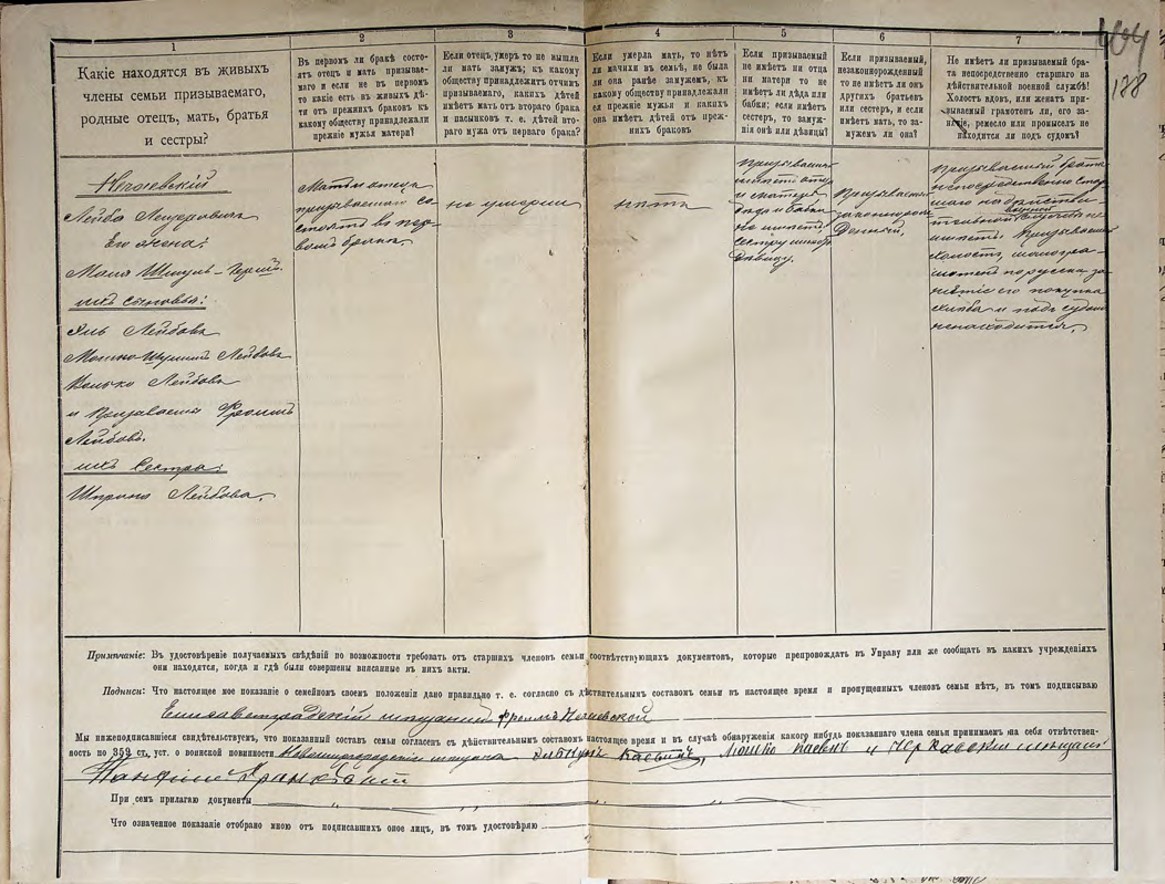 404
188
1
2
3
4
5
6
7
Какіе находятся въ живыхъ
члены семьи призываемаго,
родные отецъ, мать, братья
и сестры?
Въ первомъ ли бракѣ состо-
ятъ отецъ и мать призывае-
маго и если не въ первомъ
то какіе есть въ живыхъ дѣ-
ти отъ прежнихъ браковъ къ
какому обществу принадлежали
прежніе мужья матери?
Если отецъ умеръ то не вышла
ли мать замужъ; къ какому
обществу принадлежитъ отчимъ
призываемаго, какихъ дѣтей
имѣетъ мать отъ втораго брака
и пасынковъ т. е. дѣтей вто-
раго мужа отъ перваго брака?
Если умерла мать, то нѣтъ
ли мачихи въ семьѣ, не была
ли она ранѣе замужемъ, къ
какому обществу принадлежали
ея прежніе мужья и какихъ
она имѣетъ дѣтей отъ преж-
нихъ браковъ
Если призываемый
не имѣетъ ни отца
ни матери то не
имѣетъ ли дѣда или
бабки; если имѣетъ
сестеръ, то замуж-
нія онѣ или дѣвицы?
Если призываемый,
незаконнорожденный
то не имѣетъ ли онъ
другихъ братьевъ
или сестеръ, и если
имѣетъ мать, то за-
мужемъ ли она?
Не имѣетъ ли призываемый бра-
та непосредственно старшаго на
дѣйствительной военной службѣ!
Холостъ вдовъ, или женатъ при-
зываемый грамотенъ ли, его за-
нятіе, ремесло или промыселъ не
находится ли подъ судомъ?
Нечаевскій
Лейба Лейзеровичъ
Его жена:
Маля Шмуль-Герш.
ихъ сыновья:
Лейбовъ
Мошко Лейбовъ
Волько Лейбовъ
и Призываемый Фроимъ
Лейбовъ.
ихъ Сестра:
Шпринца Лейбова.
Мать и отецъ
призываемаго со-
стоятъ въ пер-
вомъ бракѣ.
не умерли
нѣтъ
Призываемый
имѣетъ отца
и матерь
дѣда и бабки
не имѣетъ
сестру имѣетъ
дѣвицу.
Призываемый
законнорож-
денный.
Призываемый брата
непосредственно стар-
шаго на дѣйстви-
тельной военной службѣ не
имѣетъ. Призываемый
холостъ, малогра-
мотенъ по русски, за-
нятіе его покупка
хлѣба и подъ судомъ
ненаходится.
Примѣчаніе: Въ удостовѣреніе получаемыхъ свѣдѣній по возможности требовать отъ старшихъ членовъ семьи соотвѣтствующихъ документовъ, которые препровождать въ Управу или же сообщать въ какихъ учрежденіяхъ
они находятся, когда и гдѣ были совершены вписанные въ нихъ акты.
Подписи: Что настоящее мое показаніе о семейномъ своемъ положеніи дано правильно т. е. согласно съ дѣйствительнымъ составомъ семьи въ настоящее время и пропущенныхъ членовъ семьи нѣтъ, въ томъ подписываю
Елисаветградскій мѣщанинъ Фроимъ Нечаевской
Мы нижеподписавшіеся свидѣтельствуемъ, что показанный составъ семьи согласенъ съ дѣйствительнымъ составомъ настоящее время и въ случаѣ обнаруженія какого нибудь показаннаго члена семьи принимаемъ на себя отвѣтствен-
ность по 359 ст. уст. о воинской повинности Новомиргородскій Мошко и Черкаскій мѣщанинъ
При семъ прилагаю документы
Что означенное показаніе отобрано мною отъ подписавшихъ оное лицъ, въ томъ удостовѣряю